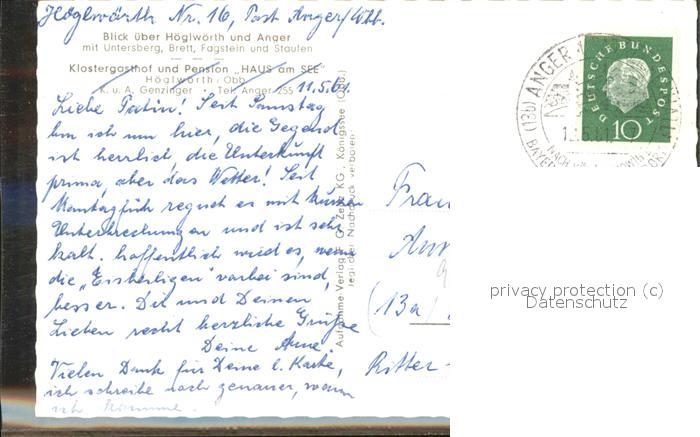 Höglwörth Nr. 16, Post Anger/Obb.
Blick über Höglwörth und Anger
mit Untersberg, Brett, Fagstein und Staufen
Klostergasthof und Pension „HAUS am SEE"
Höglwörth/Obb.
K. u. A. Genzinger • Tel. Anger 255
11.5.61.
Liebe Patin! Seit Samstag
bin ich nun hier, die Gegend
ist herrlich, die Unterkunft
prima, aber das Wetter! Seit
Montagfrüh regnet es mit kurzen
Unterbrechungen und ist sehr
kalt. Hoffentlich wird es, wenn
die „Eisheiligen" vorbei sind,
besser. Dir und Deinen
Lieben recht herzliche Grüße
Deine Anne.
Vielen Dank für Deine l. Karte,
ich schreibe noch genauer, wann
ich komme.
Aufnahme-Verlag KG., Königssee (Obb.)
Nachdruck verboten
Frau
(13a)
Ritter-
DEUTSCHE BUNDESPOST
10
(13b) ANGER
privacy protection (c)
Datenschutz